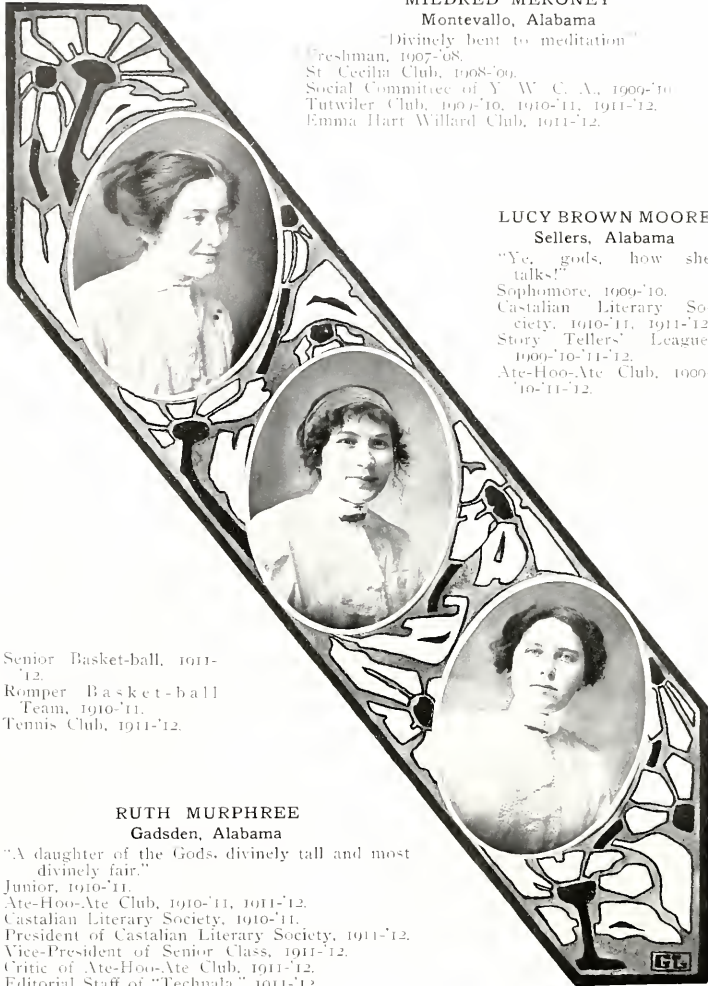 MILDRED MERONEY
Montevallo, Alabama
"Divinely bent to meditation"
Freshman, 1907-'08.
St. Cecilia Club, 1908-'09.
Social Committee of Y. W. C. A., 1909-'10
Tutwiler Club, 1909-'10, 1910-'11, 1911-'12.
Emma Hart Willard Club, 1911-'12.
LUCY BROWN MOORE
Sellers, Alabama
"Ye, gods, how she
talks!"
Sophomore, 1909-'10.
Castalian Literary So-
ciety, 1910-'11, 1911-'12
Story Tellers' League
1909-'10-'11-'12.
Ate-Hoo-Ate Club, 1909-
'10-'11-'12.
Senior Basket-ball, 1911-
'12.
Romper Basket-ball
Team, 1910-'11.
Tennis Club, 1911-'12.
RUTH MURPHREE
Gadsden, Alabama
"A daughter of the Gods, divinely tall and most
divinely fair."
Junior, 1910-'11.
Ate-Hoo-Ate Club, 1910-'11, 1911-'12.
Castalian Literary Society, 1910-'11.
President of Castalian Literary Society, 1911-'12.
Vice-President of Senior Class, 1911-'12.
Critic of Ate-Hoo-Ate Club, 1911-'12.
Editorial Staff of "Technala," 1911-'12